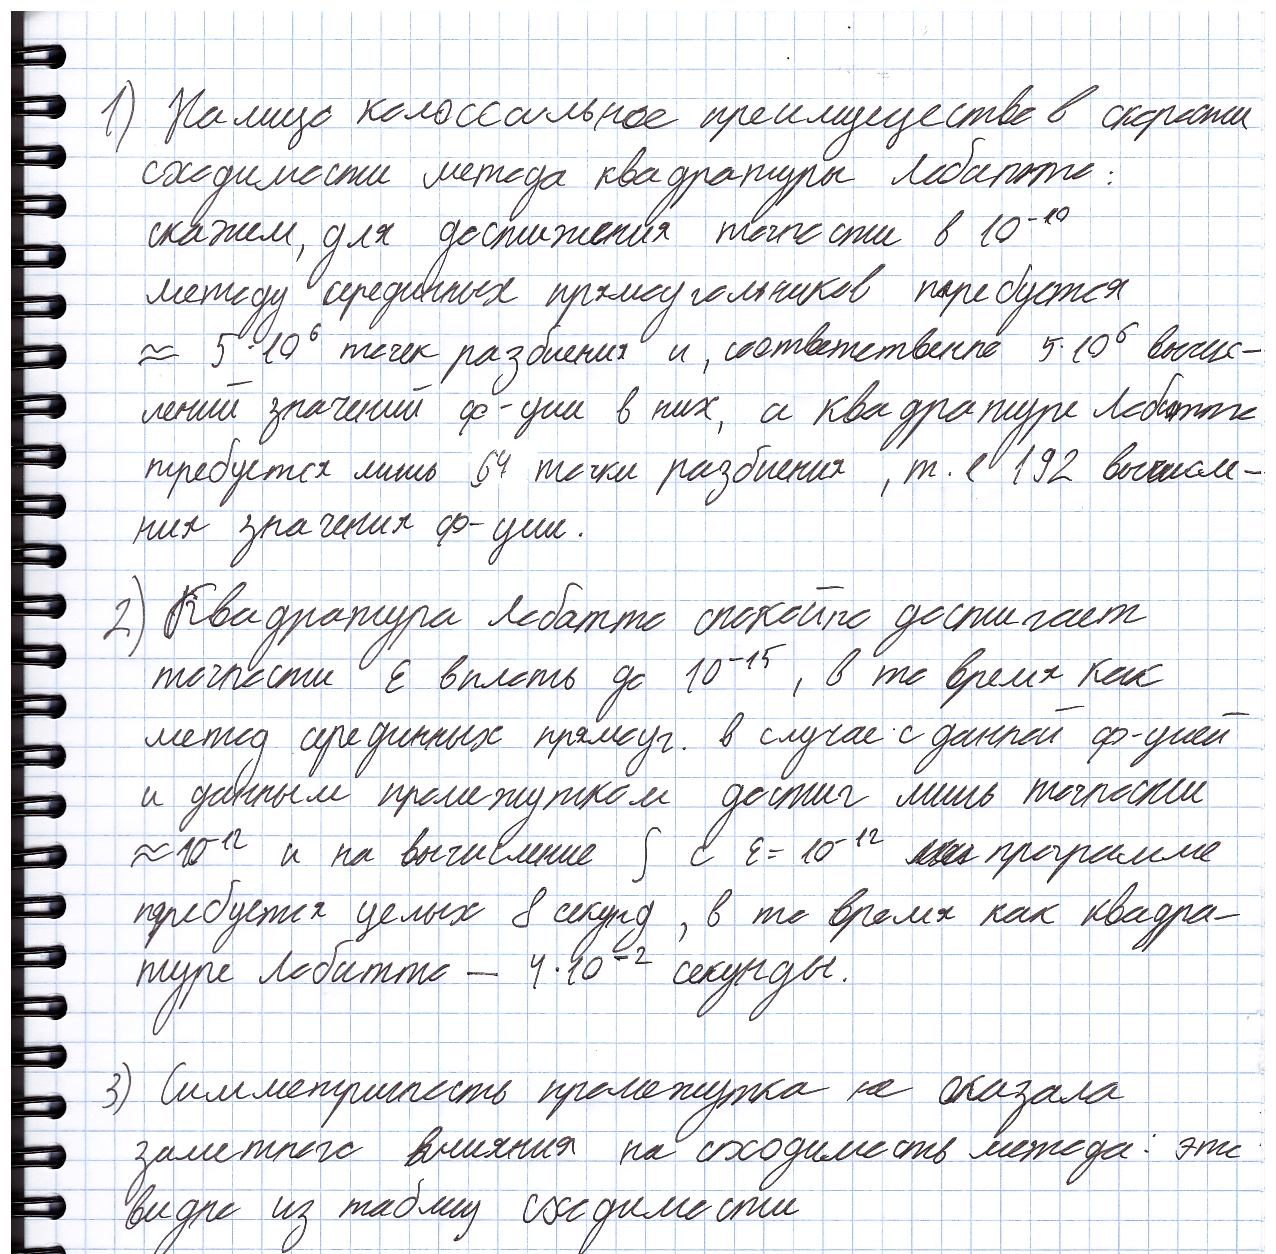 1) Налицо колоссальное преимущество в скорости
сходимости метода квадратуры Лобатто:
скажем, для достижения точности в 10⁻¹⁰
методу серединных прямоугольников требуется
≈ 5·10⁶ точек разбиения и, соответственно 5·10⁶ вычис-
лений значений ф-ции в них, а квадратуре Лобатто
требуется лишь 64 точки разбиения, т. е 192 вычисле-
ния значения ф-ции.
2) Квадратура Лобатто спокойно достигает
точности ε вплоть до 10⁻¹⁵, в то время как
метод серединных прямоуг. в случае с данной ф-цией
и данным промежутком достиг лишь точности
≈10⁻¹² и на вычисление ∫ с ε = 10⁻¹² программе
требуется целых 8 секунд, в то время как квадра-
туре Лобатто — 4·10⁻² секунды.
3) Симметричность промежутка не оказала
заметного влияния на сходимость метода: это
видно из таблиц сходимости